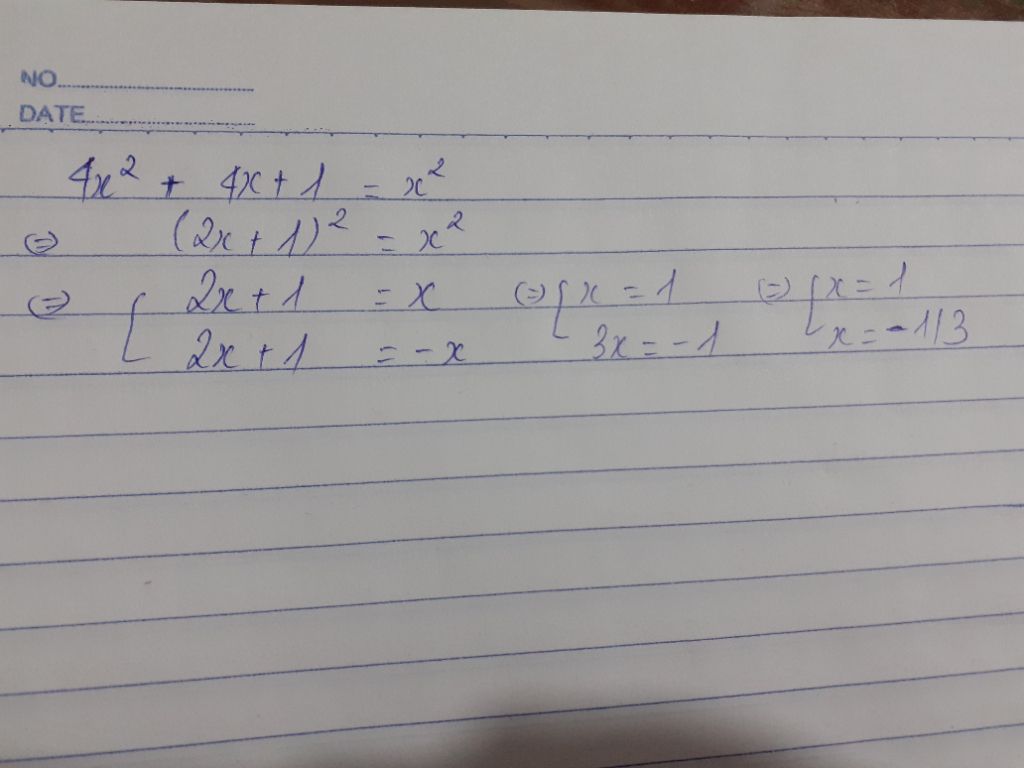 NO
DATE
4x² + 4x + 1 = x²
⇔ (2x + 1)² = x²
⇔ [ 2x + 1 = x ⇔ [ x = 1 ⇔ [ x = 1
2x + 1 = -x 3x = -1 x = -1/3